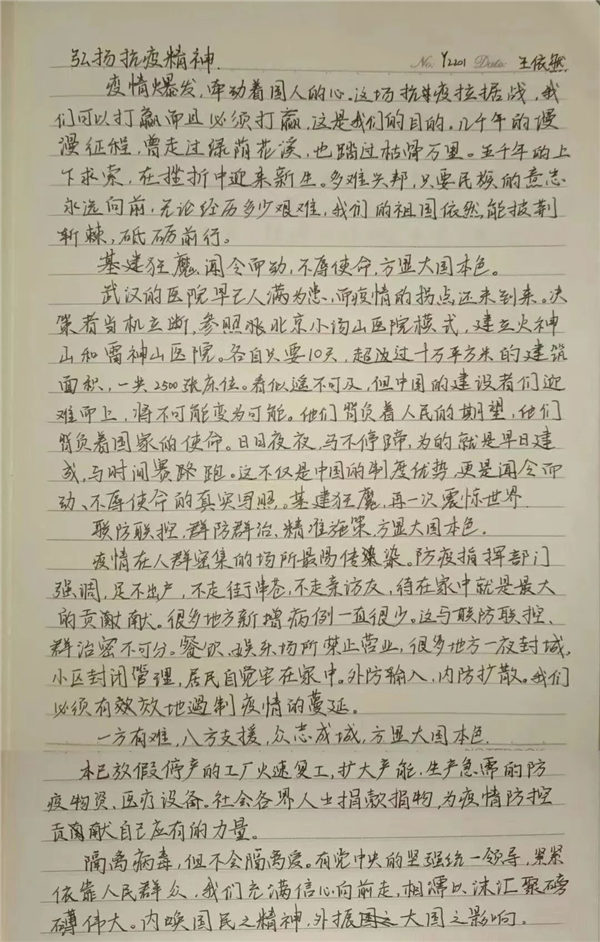 弘扬抗疫精神. No. Y2201 Date. 王依然
疫情爆发,牵动着国人的心。这场抗疫拉据战,我
们可以打赢而且必须打赢,这是我们的目的。几千年的漫
漫征程,曾走过绿荫花溪,也踏过枯骨万里。五千年的上
下求索,在挫折中迎来新生。多难兴邦,只要民族的意志
永远向前,无论经历多少艰难,我们的祖国依然能披荆
斩棘,砥砺前行。
基建狂魔,闻令而动,不辱使命,方显大国本色。
武汉的医院早已人满为患,而疫情的拐点还未到来。决
策者当机立断,参照北京小汤山医院模式,建立火神
山和雷神山医院。各自只要10天,超过十万平方米的建筑
面积,一共2500张床位。看似遥不可及,但中国的建设者们迎
难而上,将不可能变为可能。他们背负着人民的期望,他们
背负着国家的使命。日日夜夜,马不停蹄,为的就是早日建
成,与时间赛跑。这不仅是中国的制度优势,更是闻令而
动、不辱使命的真实写照。基建狂魔,再一次震惊世界.
联防联控,群防群治,精准施策,方显大国本色.
疫情在人群密集的场所最易传染。防疫指挥部门
强调,足不出户,不走街串巷,不走亲访友,待在家中就是最大
的贡献。很多地方新增病例一直很少。这与联防联控、
群治密不可分。餐饮、娱乐场所禁止营业,很多地方一夜封城,
小区封闭管理,居民自觉宅在家中。外防输入,内防扩散。我们
必须有效地遏制疫情的蔓延。
一方有难,八方支援,众志成城,方显大国本色.
本已放假停产的工厂火速复工,扩大产能,生产急需的防
疫物资、医疗设备。社会各界人士捐款捐物,为疫情防控
贡献自己应有的力量。
隔离病毒,但不会隔离爱。有党中央的坚强统一领导,紧紧
依靠人民群众,我们充满信心向前走,相濡以沫汇聚磅
礴伟大。内唤国民之精神,外振大国之影响.